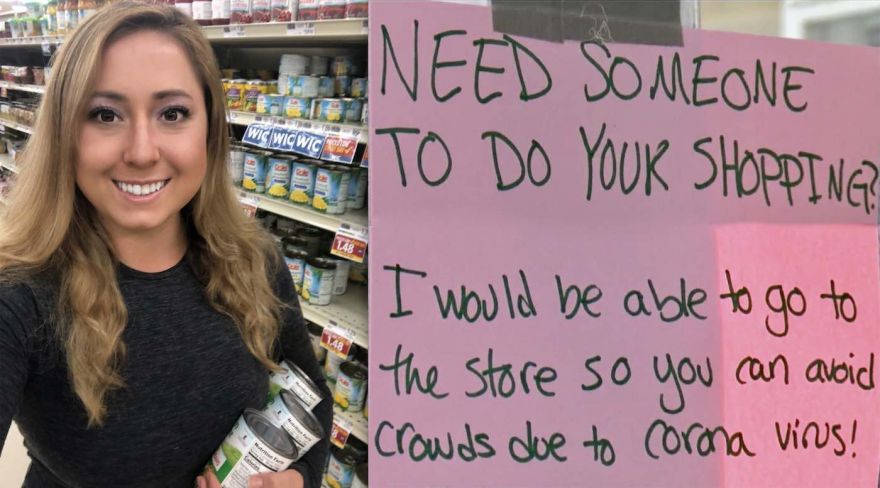 WIC WIC WIC
Dole
1.48
1.48
Nutrition Facts
NEED SOMEONE
TO DO YOUR SHOPPING?
I would be able to go to
the store so you can avoid
crowds due to corona virus!